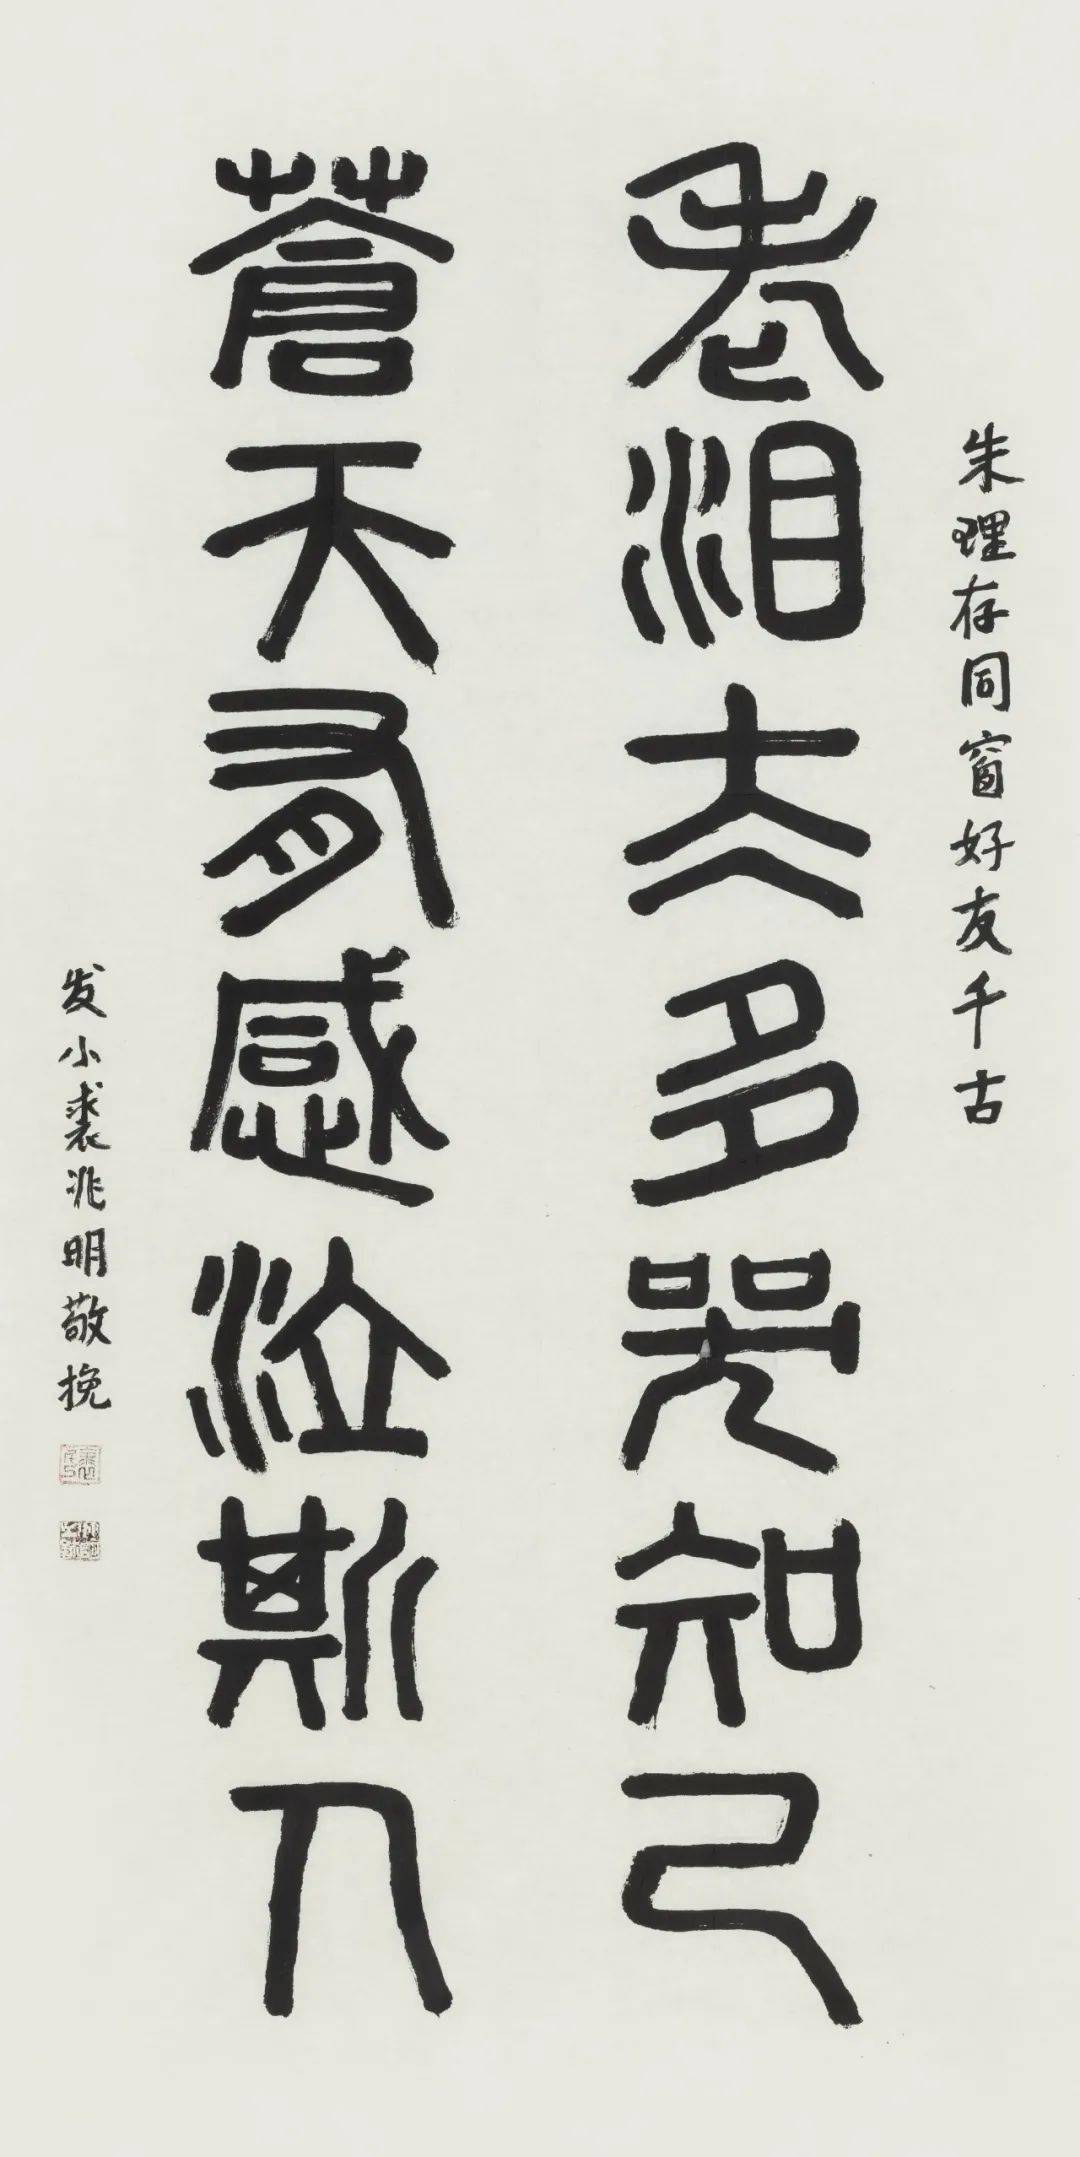 朱理存同窗好友千古
老泪大多哭知己
蒼天有感泣斯人
发小裘兆明敬挽